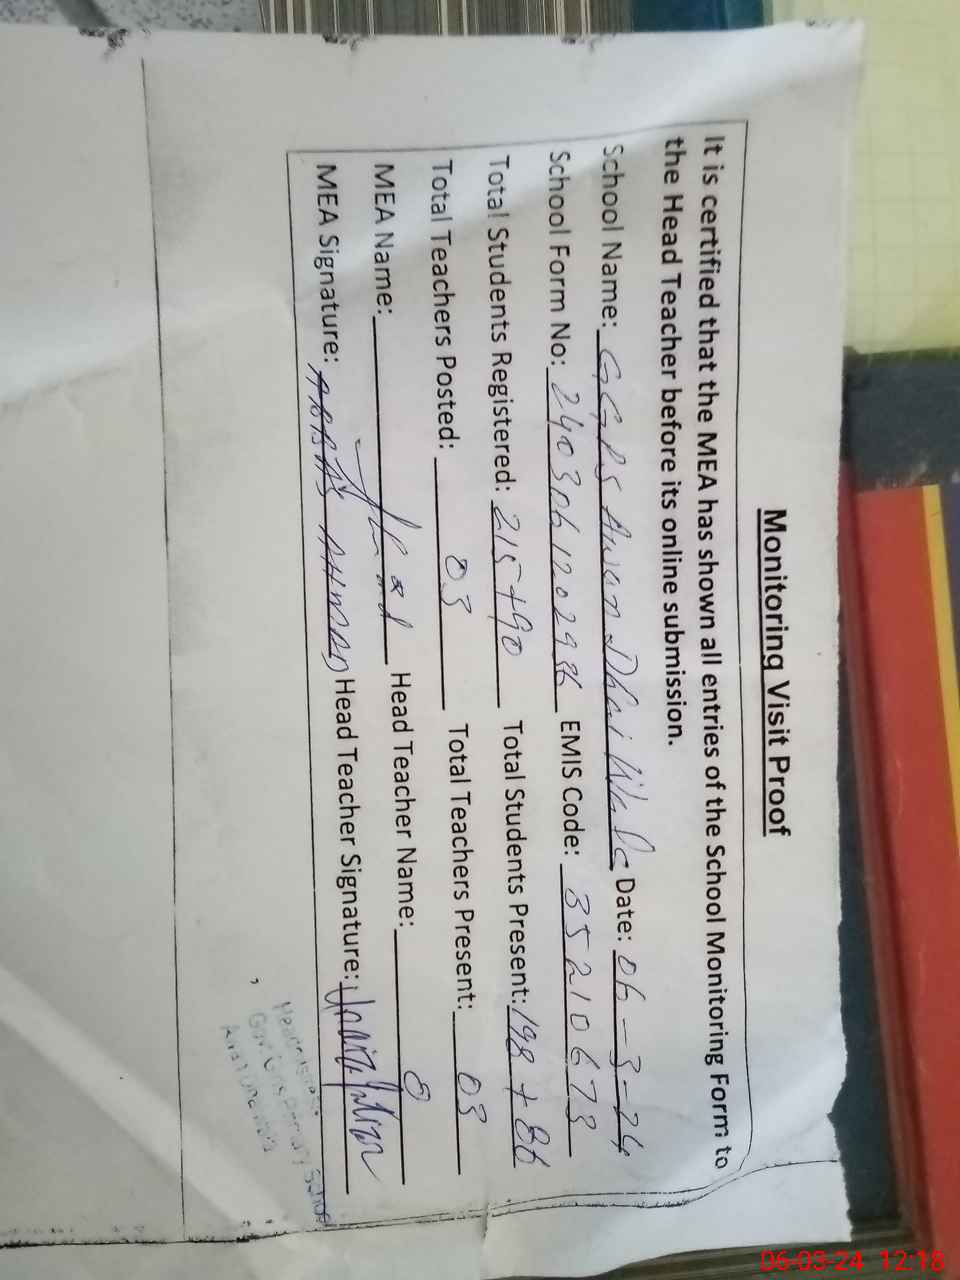 Monitoring Visit Proof
It is certified that the MEA has shown all entries of the School Monitoring Form to
the Head Teacher before its online submission.
School Name: GGPS Awan Dhai Wala Date: 06-3-24
School Form No: 2403061202986 EMIS Code: 35210673
Total Students Registered: 215+90 Total Students Present: 198+86
Total Teachers Posted: 03 Total Teachers Present: 03
MEA Name: Head Teacher Name:
MEA Signature: ABBAS AHMAD Head Teacher Signature:
06-03-24 12:18